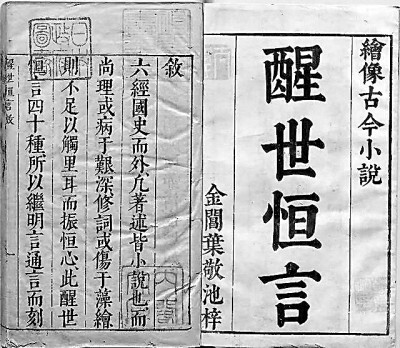 繪像古今小說
醒世恒言
金閶葉敬池梓
敘
六經國史而外凡著述皆小說也而
尚理或病于艱深修詞或傷于藻繪
則不足以觸里耳而振恒心此醒世
恒言四十種所以繼明言通言而刻
醒世恒言敘